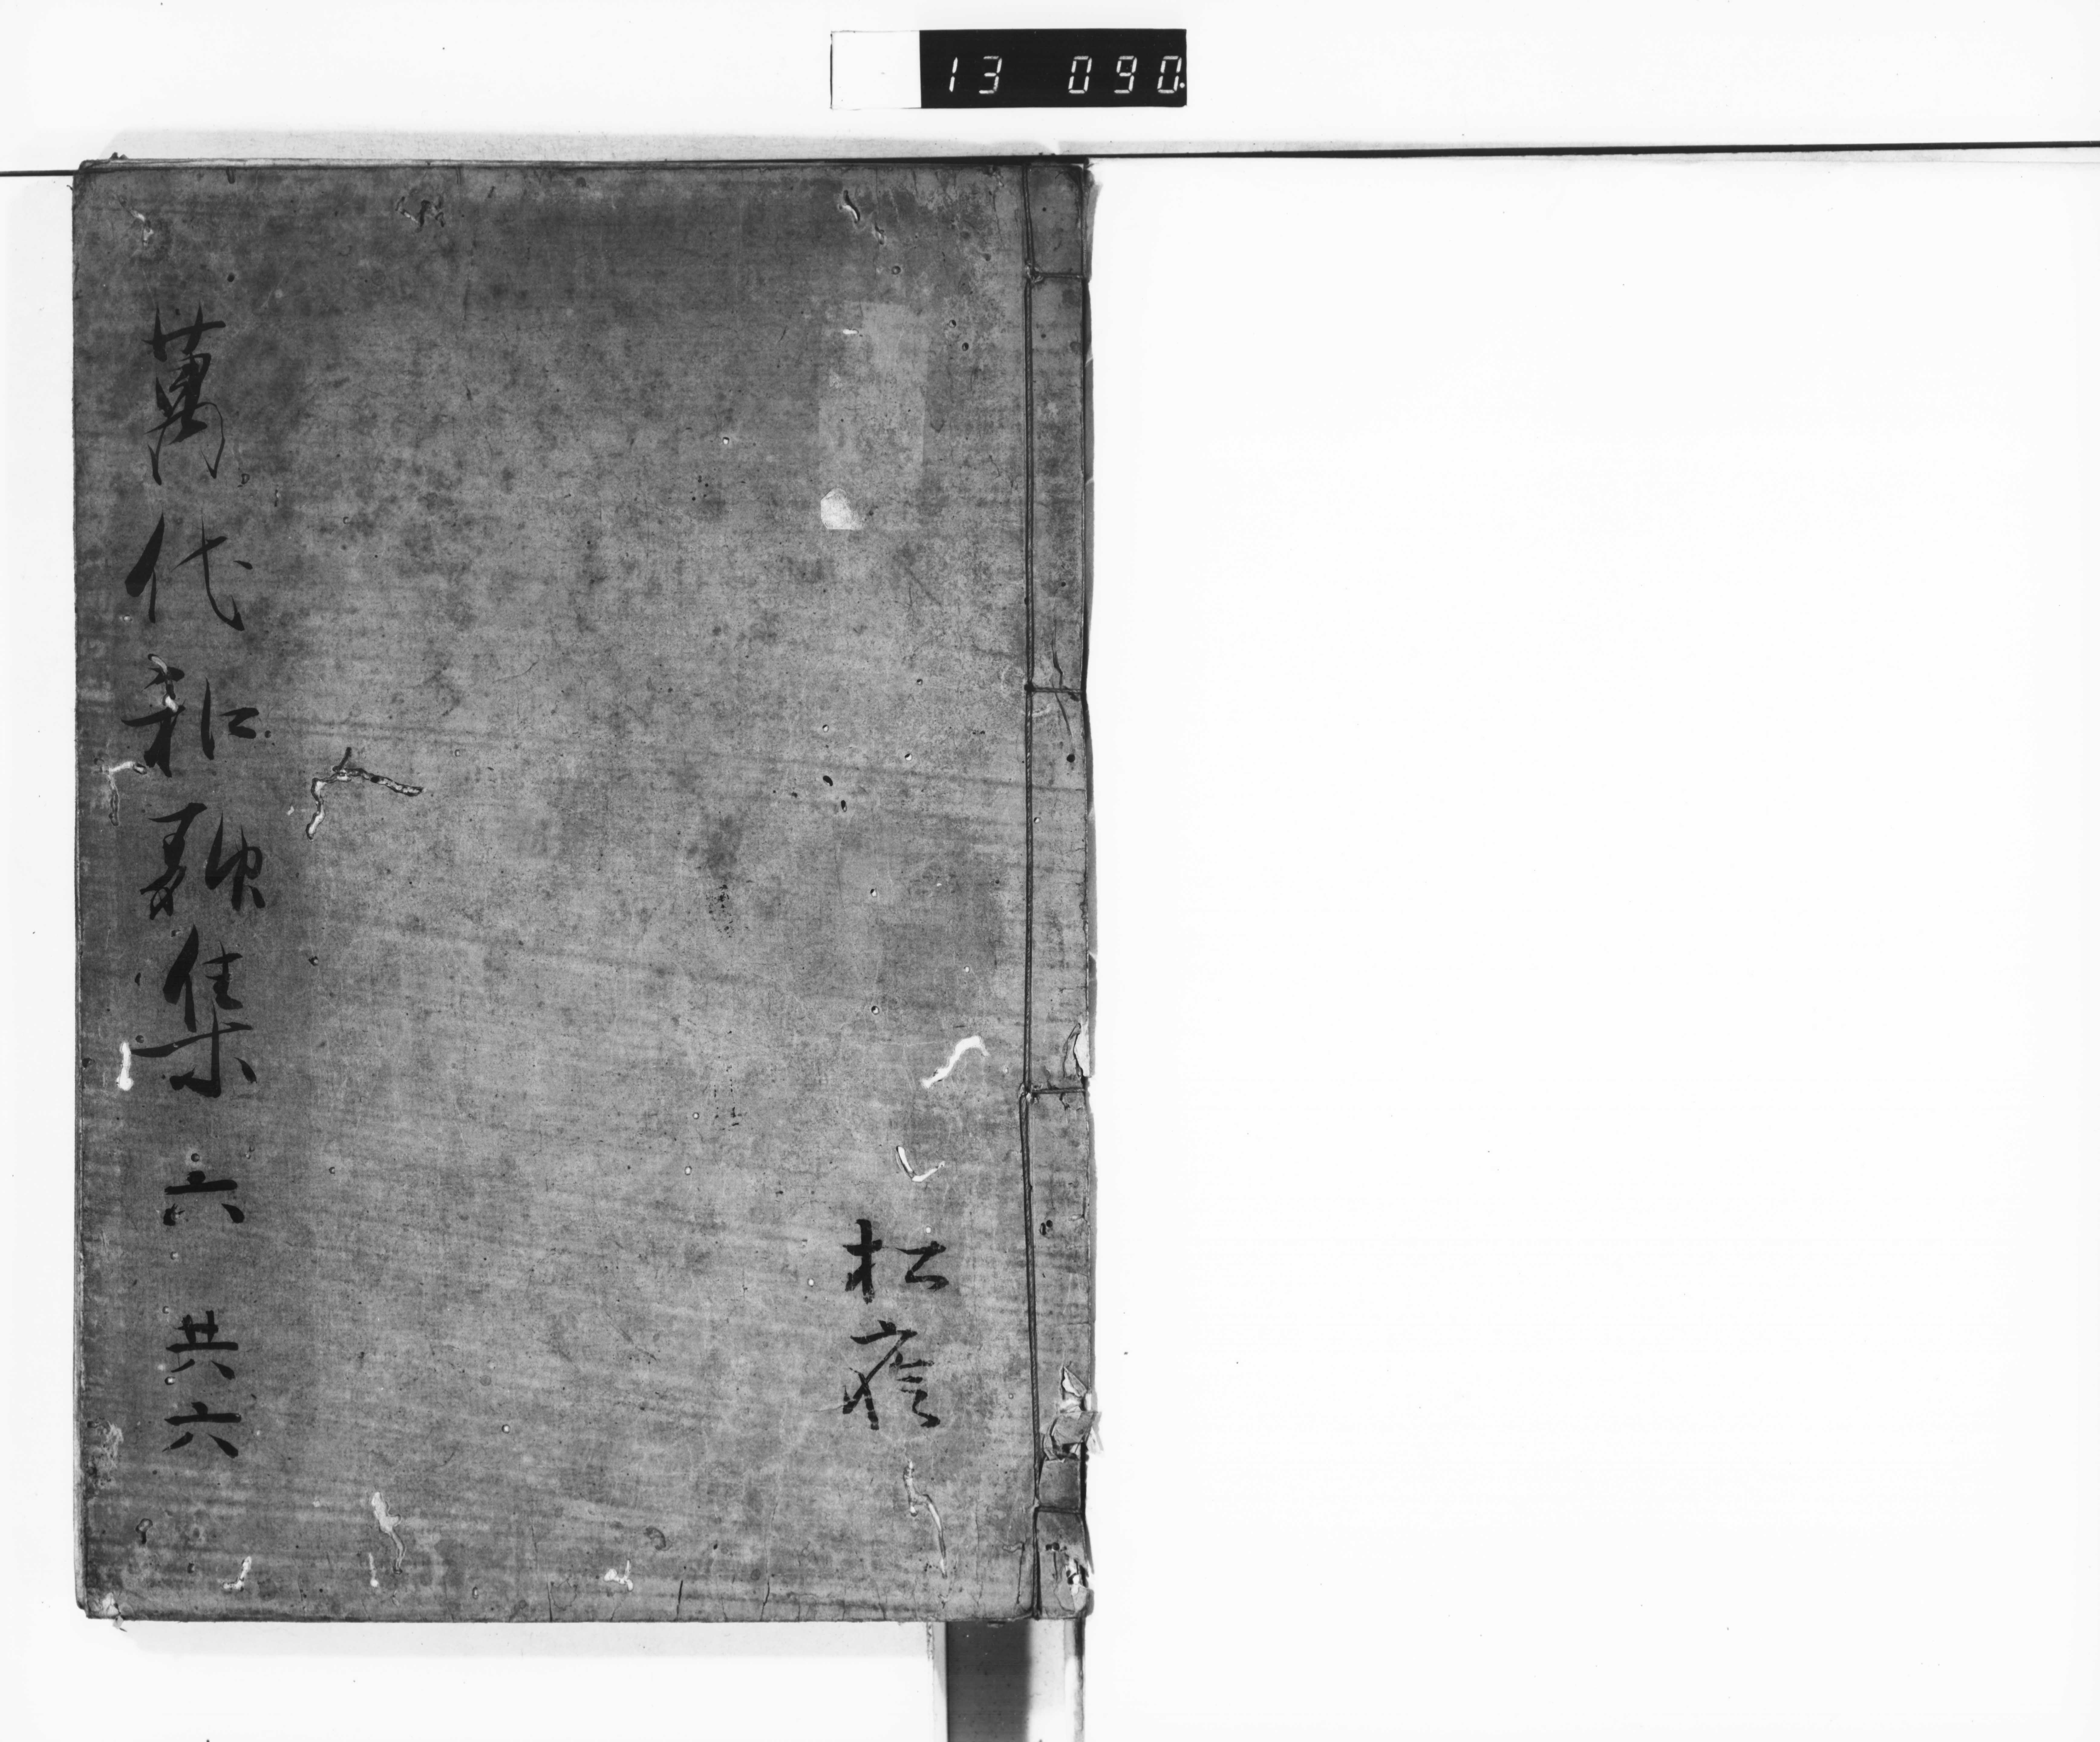 13 090.
松
萬代和歌集 六 共六